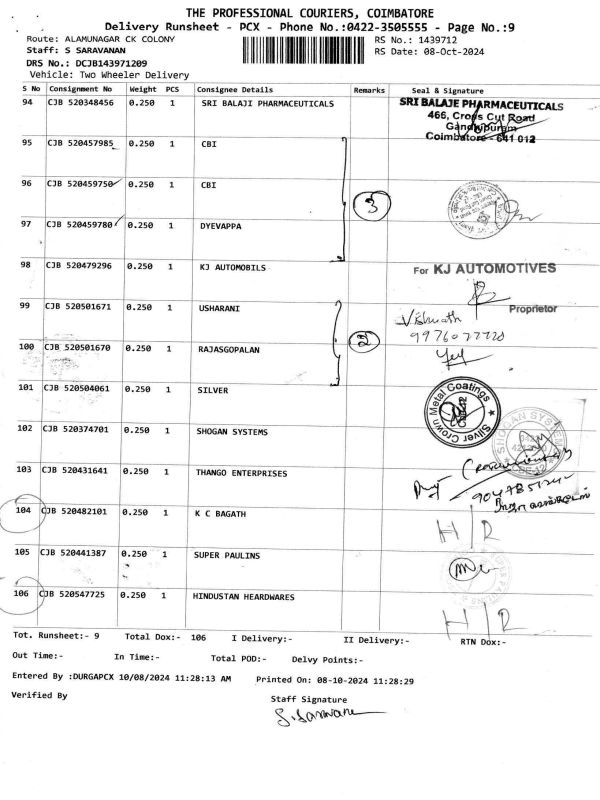 THE PROFESSIONAL COURIERS, COIMBATORE
Delivery Runsheet - PCX - Phone No.:0422-3505555 - Page No.:9
Route: ALAMUNAGAR CK COLONY RS No.: 1439712
Staff: S SARAVANAN RS Date: 08-Oct-2024
DRS No.: DCJB143971209
Vehicle: Two Wheeler Delivery
S No Consignment No Weight PCS Consignee Details Remarks Seal & Signature
94 CJB 520348456 0.250 1 SRI BALAJI PHARMACEUTICALS
SRI BALAJE PHARMACEUTICALS
466, Cross Cut Road
Gandhipuram
Coimbatore - 641 012
95 CJB 520457985 0.250 1 CBI
96 CJB 520459750 0.250 1 CBI
3
97 CJB 520459780 0.250 1 DYEVAPPA
98 CJB 520479296 0.250 1 KJ AUTOMOBILS
For KJ AUTOMOTIVES
Proprietor
99 CJB 520501671 0.250 1 USHARANI
100 CJB 520501670 0.250 1 RAJASGOPALAN
2
101 CJB 520504061 0.250 1 SILVER
Silver Crown Metal Coatings
102 CJB 520374701 0.250 1 SHOGAN SYSTEMS
SHOGAN SYSTEMS
103 CJB 520431641 0.250 1 THANGO ENTERPRISES
104 CJB 520482101 0.250 1 K C BAGATH
H/R
105 CJB 520441387 0.250 1 SUPER PAULINS
106 CJB 520547725 0.250 1 HINDUSTAN HEARDWARES
H/R
Tot. Runsheet:- 9 Total Dox:- 106 I Delivery:- II Delivery:- RTN Dox:-
Out Time:- In Time:- Total POD:- Delvy Points:-
Entered By :DURGAPCX 10/08/2024 11:28:13 AM Printed On: 08-10-2024 11:28:29
Verified By Staff Signature